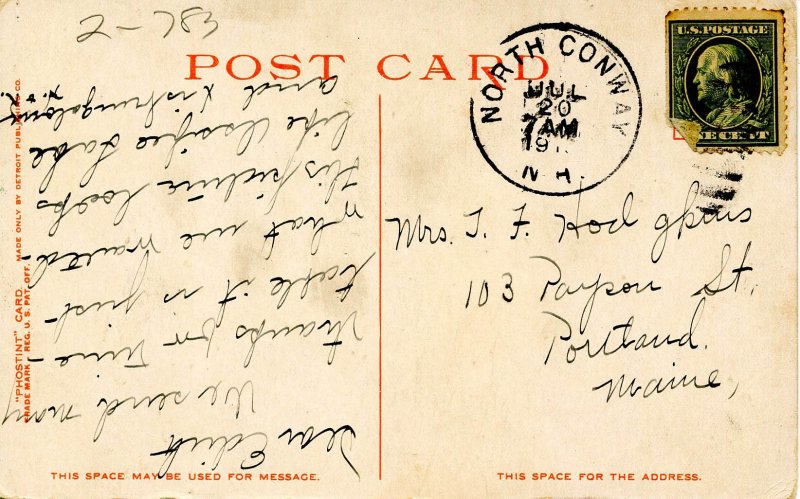 POST CARD
"PHOSTINT" CARD. MADE ONLY BY DETROIT PUBLISHING CO.
TRADE MARK REG. U. S. PAT. OFF.
Dear Edith
We send many
thanks for time-
table it is just
what we wanted.
This picture looks
like Ossipee Lake
and
THIS SPACE MAY BE USED FOR MESSAGE.
NORTH CONWAY
JUL
20
7 AM
19
N.H.
U.S. POSTAGE
ONE CENT
Mrs. T. F. Hodgkins
103 Payson St.
Portland.
Maine,
THIS SPACE FOR THE ADDRESS.